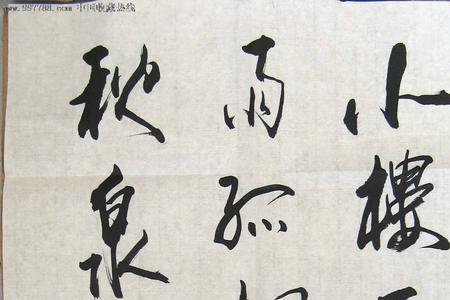 www.997788.com 中国收藏热线
小樓
雨孤
秋泉